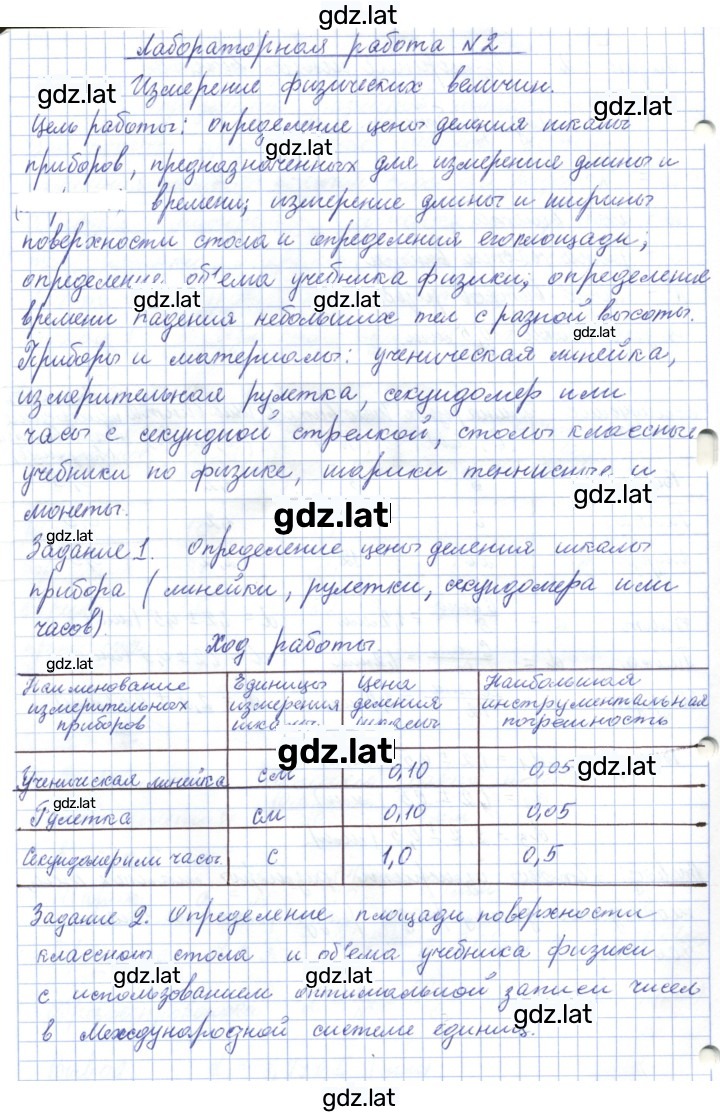 gdz.lat
Лабораторная работа №2
Измерение физических величин.
gdz.lat
gdz.lat
Цель работы: определение цены деления шкалы
gdz.lat
приборов, предназначенных для измерения длины и
времени; измерение длины и ширины
поверхности стола и определения его площади;
определение объема учебника физики; определение
gdz.lat
gdz.lat
времени падения небольших тел с разной высоты.
gdz.lat
Приборы и материалы: ученическая линейка,
измерительная рулетка, секундомер или
часы с секундной стрелкой, столы классные
учебники по физике, шарики теннисные и
gdz.lat
монеты.
gdz.lat
gdz.lat
Задание 1. Определение цены деления шкалы
прибора (линейки, рулетки, секундомера или
часов).
Ход работы.
gdz.lat
Наименование измерительных приборов Единицы измерения шкалы Цена деления шкалы Наибольшая инструментальная погрешность
gdz.lat
gdz.lat
Ученическая линейка см 0,10 0,05
gdz.lat
Рулетка см 0,10 0,05
Секундомер или часы с 1,0 0,5
Задание 2. Определение площади поверхности
классного стола и объема учебника физики
gdz.lat
gdz.lat
с использованием оптимальной записи чисел
gdz.lat
в Международной системе единиц.
gdz.lat